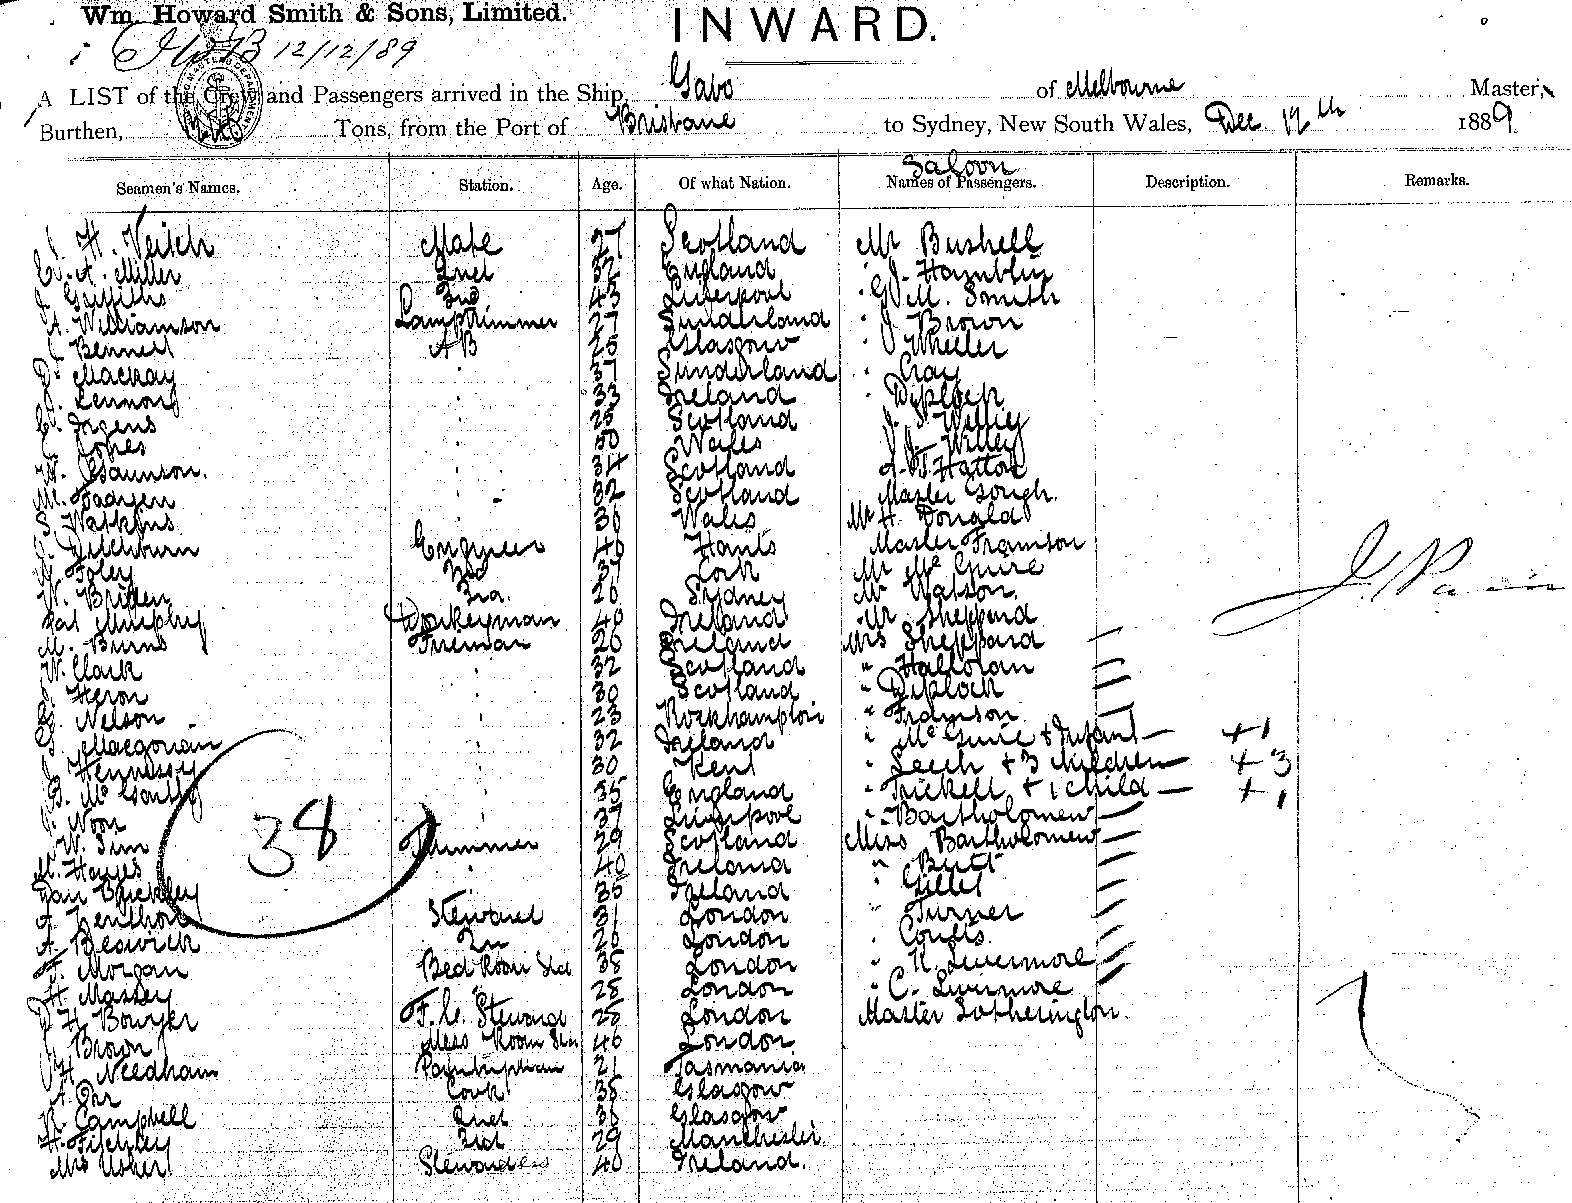 Wm. Howard Smith & Sons, Limited.
INWARD.
12/12/89
A LIST of the Crew and Passengers arrived in the Ship Gabo of Melbourne Master,
Burthen, Tons, from the Port of Brisbane to Sydney, New South Wales, Dec 12th 1889
Saloon
Seamen's Names. Station. Age. Of what Nation. Names of Passengers. Description. Remarks.
H. Veitch Mate 27 Scotland Mr Bushell
A. Miller 2nd 32 England " Hamblin
J Griffiths 3rd 43 Liverpool " M. Smith
A. Williamson Lamptrimmer 27 Sunderland " J Brown
Bennett AB 25 Glasgow " J Wheeler
Mackay 37 Sunderland " Gray
Lennon 33 Ireland
25 Scotland J. S. Willey
Jones 30 Wales Willey
W. Gaunson. 34 Scotland Hatton
M. 32 Scotland Master Gough.
S. Watkins 36 Wales Mr H. Donald
Ditchburn Engineer 49 Hants Master Framson
Foley 2nd 37 Cork Mr McGuire
W. Britten 3rd. 26 Sydney Mr Watson.
Pat Murphy Donkeyman 40 Ireland Mr Sheppard
M. Burns Fireman 26 Ireland Mrs Sheppard
W. Clark 32 Scotland " Halloran
J. Heron 30 Scotland " Diplock
G. Nelson 23 Rockhampton " Framson
32 Ireland " McGuire & Infant + 1
J. Hennessy 30 Kent " Leech & 3 children + 3
B. McGorthy 35 England " Trickett & 1 child + 1
J. Woon 37 Liverpool " Bartholomew
W. Sim Trimmer 29 Scotland Miss Bartholomew
38
M. Hayes 40 Ireland " Butt
Dan Buckley 35 Ireland " Gillet
A. Steward 31 London " Turner
A. Beswick 2nd 26 London " Coutts
F. Morgan Bed Room Std 38 London " R. Livermore
H Massey 28 London " C. Livermore
H Bowyer F. C. Steward 26 London Master Lotherington.
J Brown Mess Room 46 London
H. Needham 21 Tasmania
A. Orr Cook 35 Glasgow
R. Campbell 2nd 36 Glasgow
H. Fitchley 3rd 29 Manchester.
Mrs Usher Stewardess 40 Ireland.